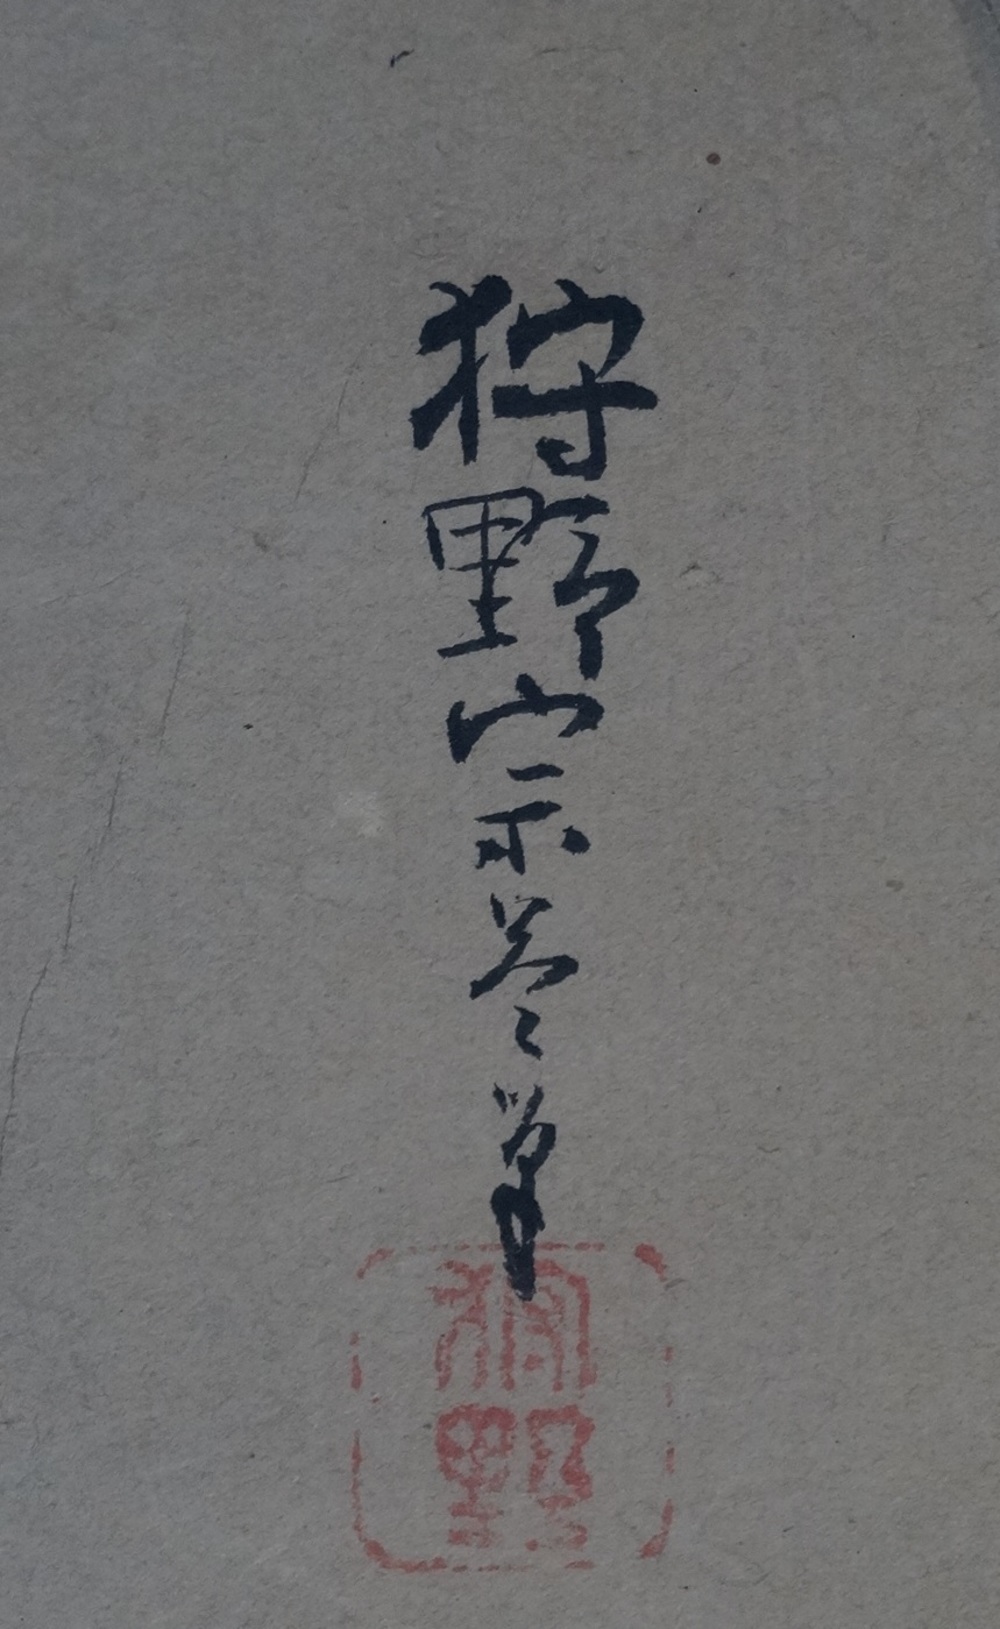 狩野宗筆
狩野